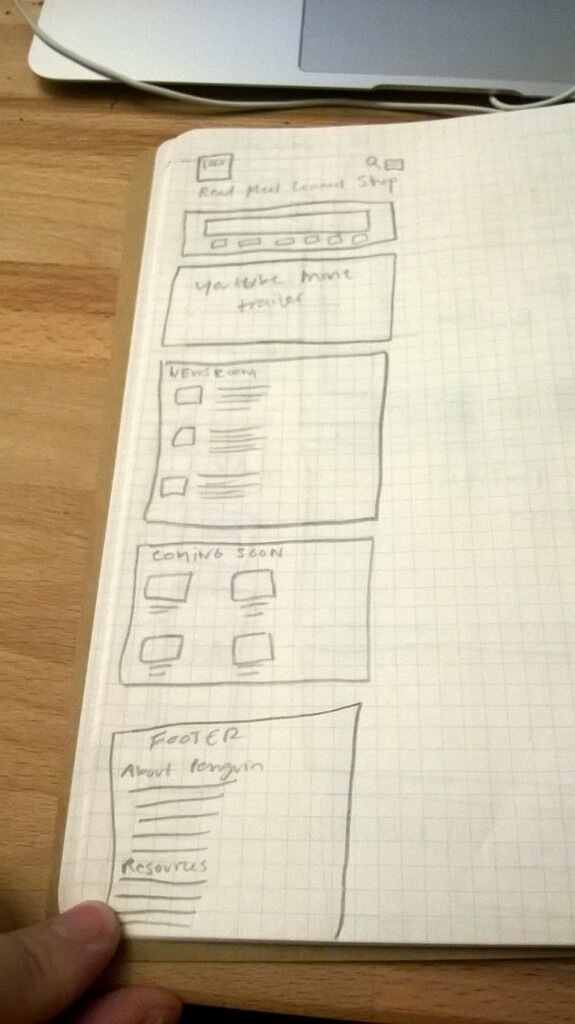 LOGO
Read Meet Connect Shop
youtube movie
trailer
NEWSROOM
COMING SOON
FOOTER
About Penguin
Resources